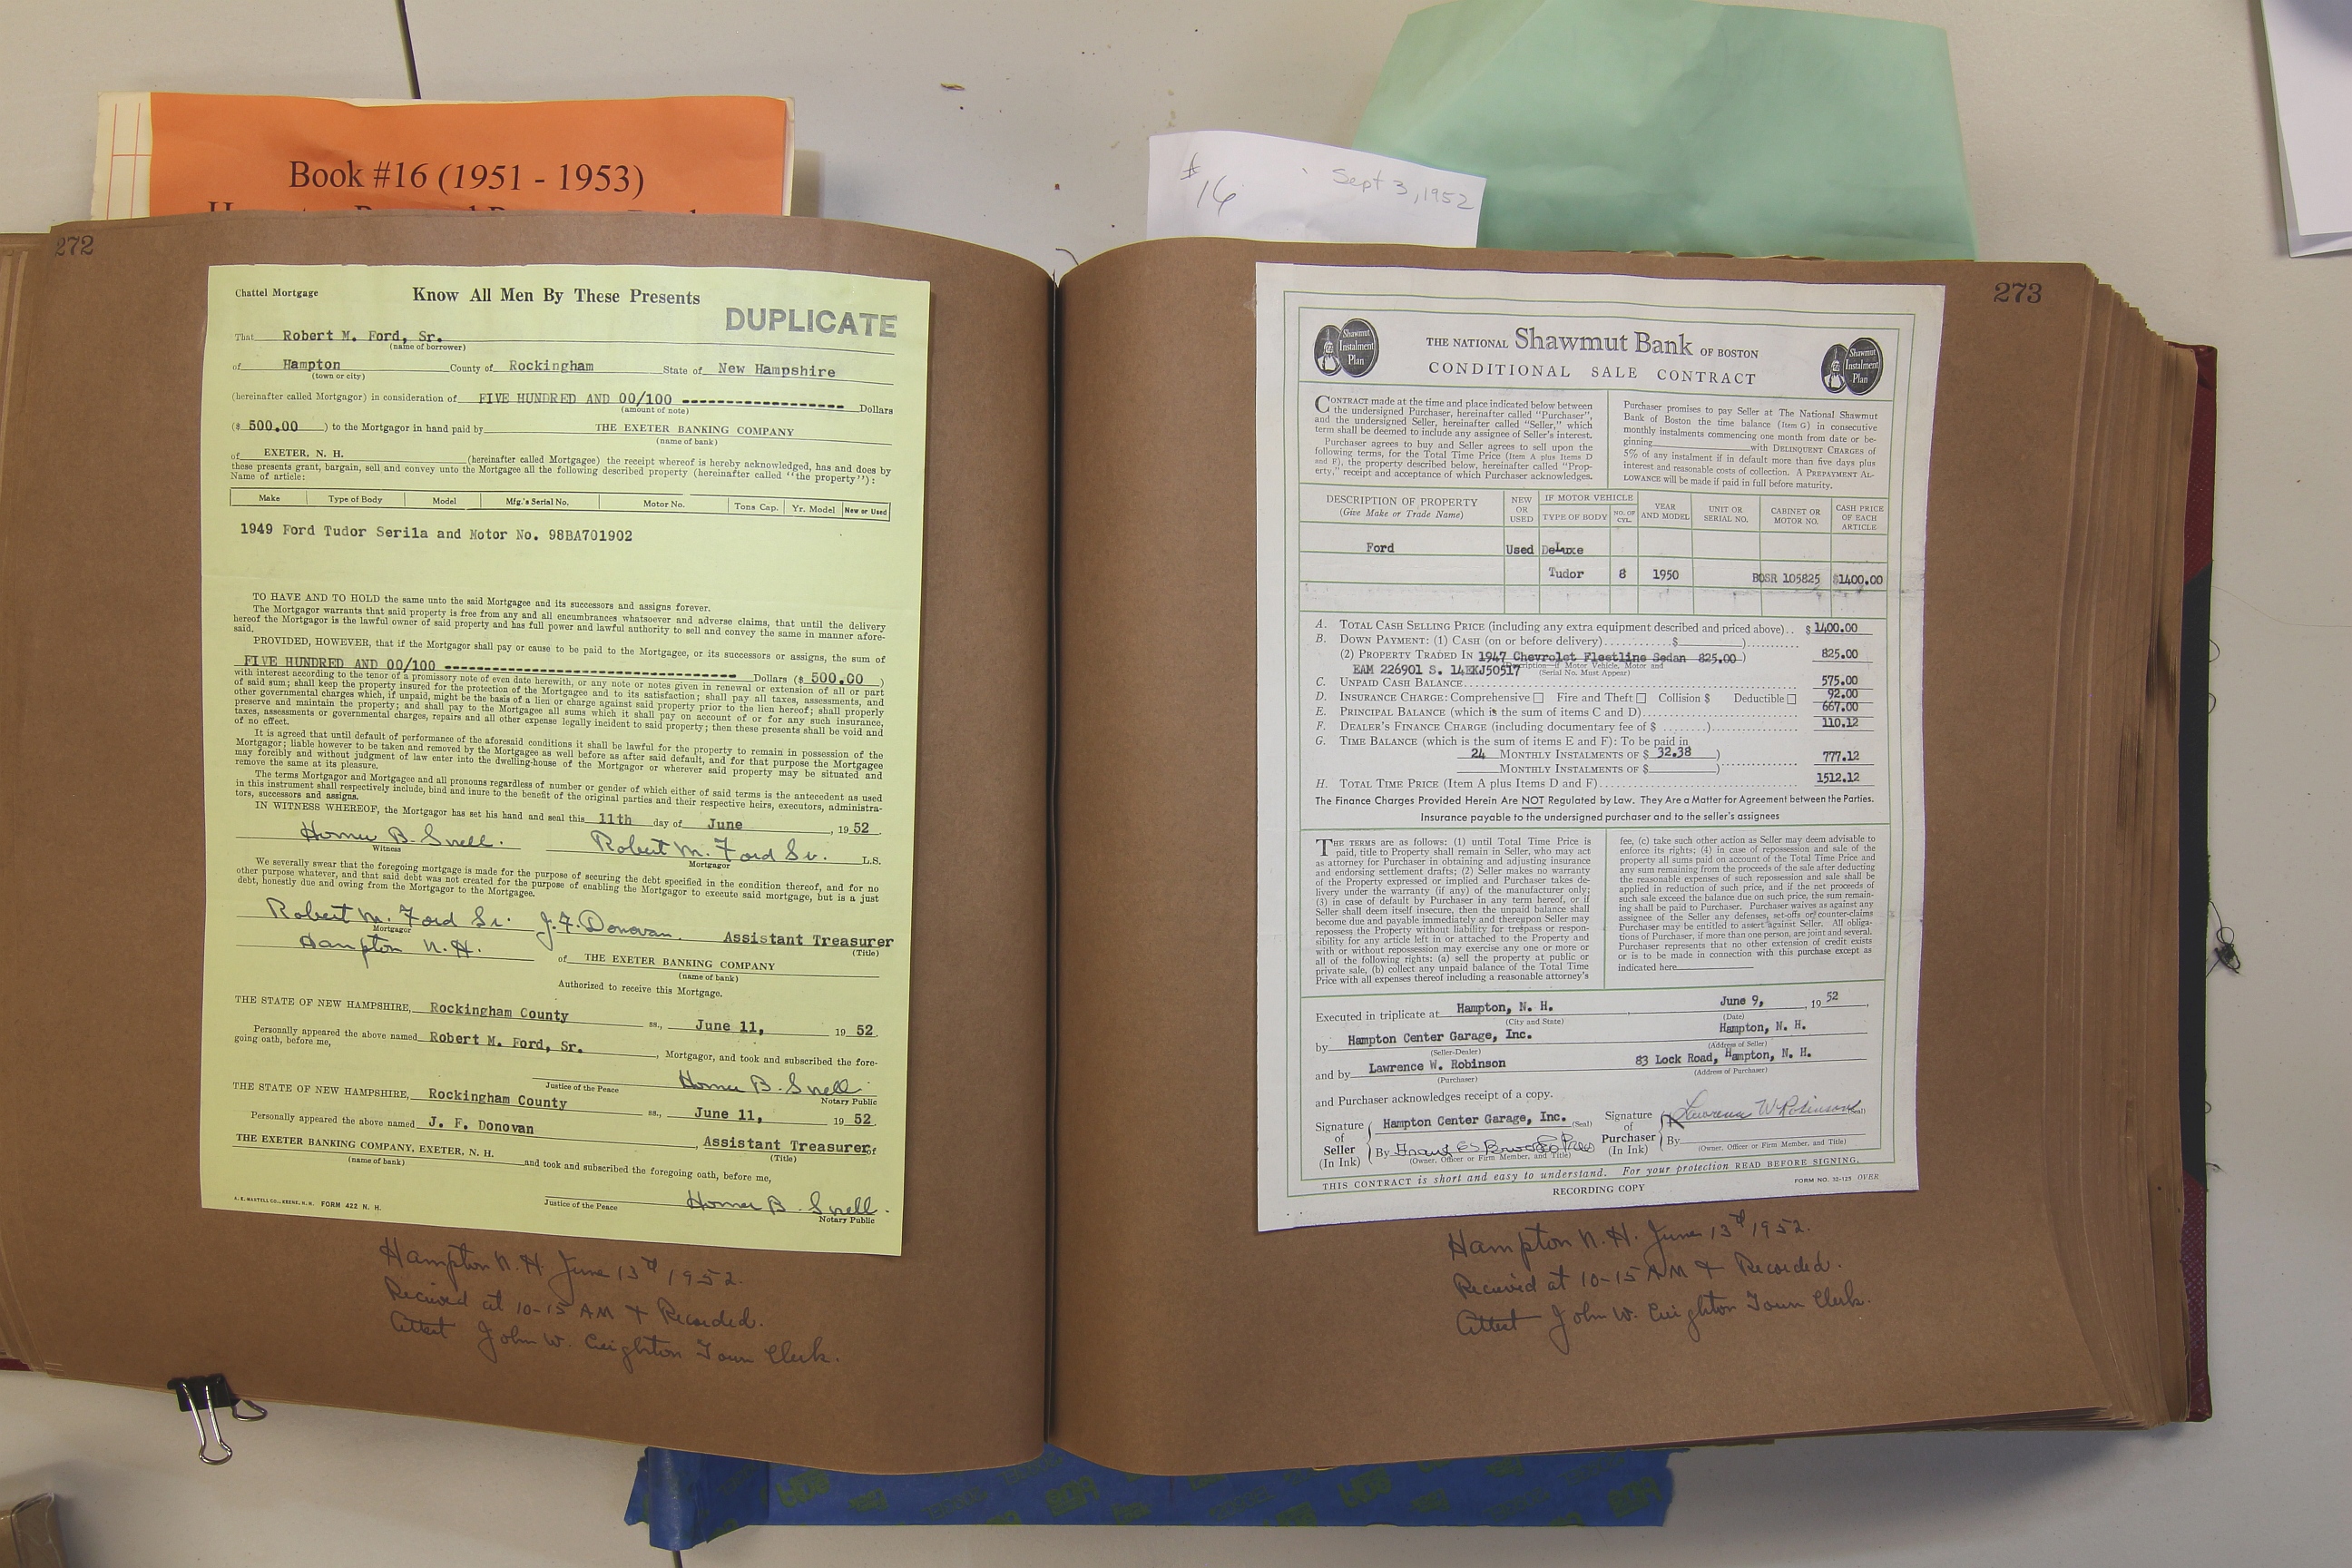 Book #16 (1951 - 1953)
# 16 Sept 3, 1952
272
Chattel Mortgage
Know All Men By These Presents
DUPLICATE
That Robert M. Ford, Sr.
(name of borrower)
of Hampton County of Rockingham State of New Hampshire
(town or city)
(hereinafter called Mortgagor) in consideration of FIVE HUNDRED AND 00/100 ---------------- Dollars
(amount of note)
($ 500.00 ) to the Mortgagor in hand paid by THE EXETER BANKING COMPANY
(name of bank)
of EXETER, N. H. (hereinafter called Mortgagee) the receipt whereof is hereby acknowledged, has and does by
these presents grant, bargain, sell and convey unto the Mortgagee all the following described property (hereinafter called "the property"):
Name of article:
Make Type of Body Model Mfg.'s Serial No. Motor No. Tons Cap. Yr. Model New or Used
1949 Ford Tudor Serila and Motor No. 98BA701902
TO HAVE AND TO HOLD the same unto the said Mortgagee and its successors and assigns forever.
The Mortgagor warrants that said property is free from any and all encumbrances whatsoever and adverse claims, that until the delivery
hereof the Mortgagor is the lawful owner of said property and has full power and lawful authority to sell and convey the same in manner afore-
said.
PROVIDED, HOWEVER, that if the Mortgagor shall pay or cause to be paid to the Mortgagee, or its successors or assigns, the sum of
FIVE HUNDRED AND 00/100 ---------------------------- Dollars ($ 500.00 )
with interest according to the tenor of a promissory note of even date herewith, or any note or notes given in renewal or extension of all or part
of said sum; shall keep the property insured for the protection of the Mortgagee and to its satisfaction; shall pay all taxes, assessments, and
other governmental charges which, if unpaid, might be the basis of a lien or charge against said property prior to the lien hereof; shall properly
preserve and maintain the property; and shall pay to the Mortgagee all sums which it shall pay on account of or for any such insurance,
taxes, assessments or governmental charges, repairs and all other expense legally incident to said property; then these presents shall be void and
of no effect.
It is agreed that until default of performance of the aforesaid conditions it shall be lawful for the property to remain in possession of the
Mortgagor; liable however to be taken and removed by the Mortgagee as well before as after said default, and for that purpose the Mortgagee
may forcibly and without judgment of law enter into the dwelling-house of the Mortgagor or wherever said property may be situated and
remove the same at its pleasure.
The terms Mortgagor and Mortgagee and all pronouns regardless of number or gender of which either of said terms is the antecedent as used
in this instrument shall respectively include, bind and inure to the benefit of the original parties and their respective heirs, executors, administra-
tors, successors and assigns.
IN WITNESS WHEREOF, the Mortgagor has set his hand and seal this 11th day of June , 19 52.
Homer B. Snell. Robert M. Ford Sr. L.S.
Witness Mortgagor
We severally swear that the foregoing mortgage is made for the purpose of securing the debt specified in the condition thereof, and for no
other purpose whatever, and that said debt was not created for the purpose of enabling the Mortgagor to execute said mortgage, but is a just
debt, honestly due and owing from the Mortgagor to the Mortgagee.
Robert M. Ford Sr. J.F. Donovan. Assistant Treasurer
Mortgagor (Title)
Hampton N. H. of THE EXETER BANKING COMPANY
(name of bank)
Authorized to receive this Mortgage.
THE STATE OF NEW HAMPSHIRE, Rockingham County ss., June 11, 19 52.
Personally appeared the above named Robert M. Ford, Sr. , Mortgagor, and took and subscribed the fore-
going oath, before me,
Homer B. Snell
Justice of the Peace Notary Public
THE STATE OF NEW HAMPSHIRE, Rockingham County ss., June 11, 19 52.
Personally appeared the above named J. F. Donovan , Assistant Treasurer of
(Title)
THE EXETER BANKING COMPANY, EXETER, N. H. and took and subscribed the foregoing oath, before me,
(name of bank)
Homer B. Snell.
Justice of the Peace Notary Public
FORM 422 N. H.
Hampton N. H. June 13th 1952.
Recieved at 10-15 AM + Recorded.
Attest John W. Creighton Town Clerk.
273
Shawmut Instalment Plan
THE NATIONAL Shawmut Bank OF BOSTON
CONDITIONAL SALE CONTRACT
Shawmut Instalment Plan
CONTRACT made at the time and place indicated below between
the undersigned Purchaser, hereinafter called "Purchaser",
and the undersigned Seller, hereinafter called "Seller," which
term shall be deemed to include any assignee of Seller's interest.
Purchaser agrees to buy and Seller agrees to sell upon the
following terms, for the Total Time Price (Item A plus Items D
and F), the property described below, hereinafter called "Prop-
erty," receipt and acceptance of which Purchaser acknowledges.
Purchaser promises to pay Seller at The National Shawmut
Bank of Boston the time balance (Item G) in consecutive
monthly instalments commencing one month from date or be-
ginning with DELINQUENT CHARGES of
5% of any instalment if in default more than five days plus
interest and reasonable costs of collection. A PREPAYMENT AL-
LOWANCE will be made if paid in full before maturity.
DESCRIPTION OF PROPERTY (Give Make or Trade Name) NEW OR USED IF MOTOR VEHICLE TYPE OF BODY NO. OF CYL. YEAR AND MODEL UNIT OR SERIAL NO. CABINET OR MOTOR NO. CASH PRICE OF EACH ARTICLE
Ford Used DeLuxe
Tudor 8 1950 BOSR 105825 $1400.00
A. TOTAL CASH SELLING PRICE (including any extra equipment described and priced above).. $ 1400.00
B. DOWN PAYMENT: (1) CASH (on or before delivery)..........$ )..........
(2) PROPERTY TRADED IN 1947 Chevrolet Fleetline Sedan 825.00 ) 825.00
EAM 226901 S. 14EKJ50517 (Description—if Motor Vehicle, Motor and Serial No. Must Appear)
C. UNPAID CASH BALANCE.......... 575.00
D. INSURANCE CHARGE: Comprehensive Fire and Theft Collision $ Deductible 92.00
E. PRINCIPAL BALANCE (which is the sum of items C and D).......... 667.00
F. DEALER'S FINANCE CHARGE (including documentary fee of $ ........).......... 110.12
G. TIME BALANCE (which is the sum of items E and F): To be paid in
24 MONTHLY INSTALMENTS OF $ 32.38 ) 777.12
MONTHLY INSTALMENTS OF $ )
H. TOTAL TIME PRICE (Item A plus Items D and F).......... 1512.12
The Finance Charges Provided Herein Are NOT Regulated by Law. They Are a Matter for Agreement between the Parties.
Insurance payable to the undersigned purchaser and to the seller's assignees
THE TERMS are as follows: (1) until Total Time Price is
paid, title to Property shall remain in Seller, who may act
as attorney for Purchaser in obtaining and adjusting insurance
and endorsing settlement drafts; (2) Seller makes no warranty
of the Property expressed or implied and Purchaser takes de-
livery under the warranty (if any) of the manufacturer only;
(3) in case of default by Purchaser in any term hereof, or if
Seller shall deem itself insecure, then the unpaid balance shall
become due and payable immediately and thereupon Seller may
repossess the Property without liability for trespass or respon-
sibility for any article left in or attached to the Property and
with or without repossession may exercise any one or more or
all of the following rights: (a) sell the property at public or
private sale, (b) collect any unpaid balance of the Total Time
Price with all expenses thereof including a reasonable attorney's
fee, (c) take such other action as Seller may deem advisable to
enforce its rights; (4) in case of repossession and sale of the
property all sums paid on account of the Total Time Price and
any sum remaining from the proceeds of the sale after deducting
the reasonable expenses of such repossession and sale shall be
applied in reduction of such price, and if the net proceeds of
such sale exceed the balance due on such price, the sum remain-
ing shall be paid to Purchaser. Purchaser waives as against any
assignee of the Seller any defenses, set-offs or counter-claims
Purchaser may be entitled to assert against Seller. All obliga-
tions of Purchaser, if more than one person, are joint and several.
Purchaser represents that no other extension of credit exists
or is to be made in connection with this purchase except as
indicated here
Executed in triplicate at Hampton, N. H. June 9, , 19 52 ,
(City and State) (Date)
by Hampton Center Garage, Inc. Hampton, N. H.
(Seller-Dealer) (Address of Seller)
and by Lawrence W. Robinson 83 Lock Road, Hampton, N. H.
(Purchaser) (Address of Purchaser)
and Purchaser acknowledges receipt of a copy.
Signature of Seller (In Ink) Hampton Center Garage, Inc. (Seal)
By
(Owner, Officer or Firm Member, and Title)
Signature of Purchaser (In Ink) Lawrence W. Robinson (Seal)
By
(Owner, Officer or Firm Member, and Title)
THIS CONTRACT is short and easy to understand. For your protection READ BEFORE SIGNING.
RECORDING COPY
FORM NO. 32-123 OVER
Hampton N. H. June 13th 1952.
Recieved at 10-15 AM + Recorded.
Attest John W. Creighton Town Clerk.